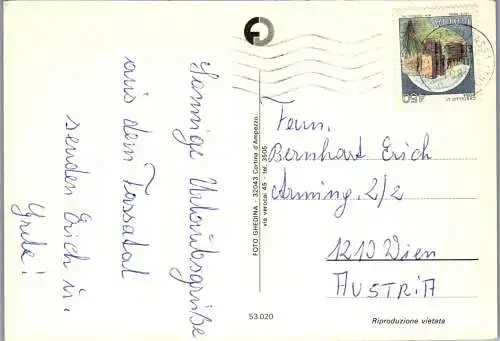 Sonnige Urlaubsgrüße
aus dem Fassatal
senden Erich u.
Grete!
FOTO GHEDINA - 32043 Cortina d'Ampezzo
via verocai 45 - tel. 3505
Fam.
Bernhart Erich
Arming. 2/2
1210 Wien
AUSTRIA
53.020
Riproduzione vietata
450